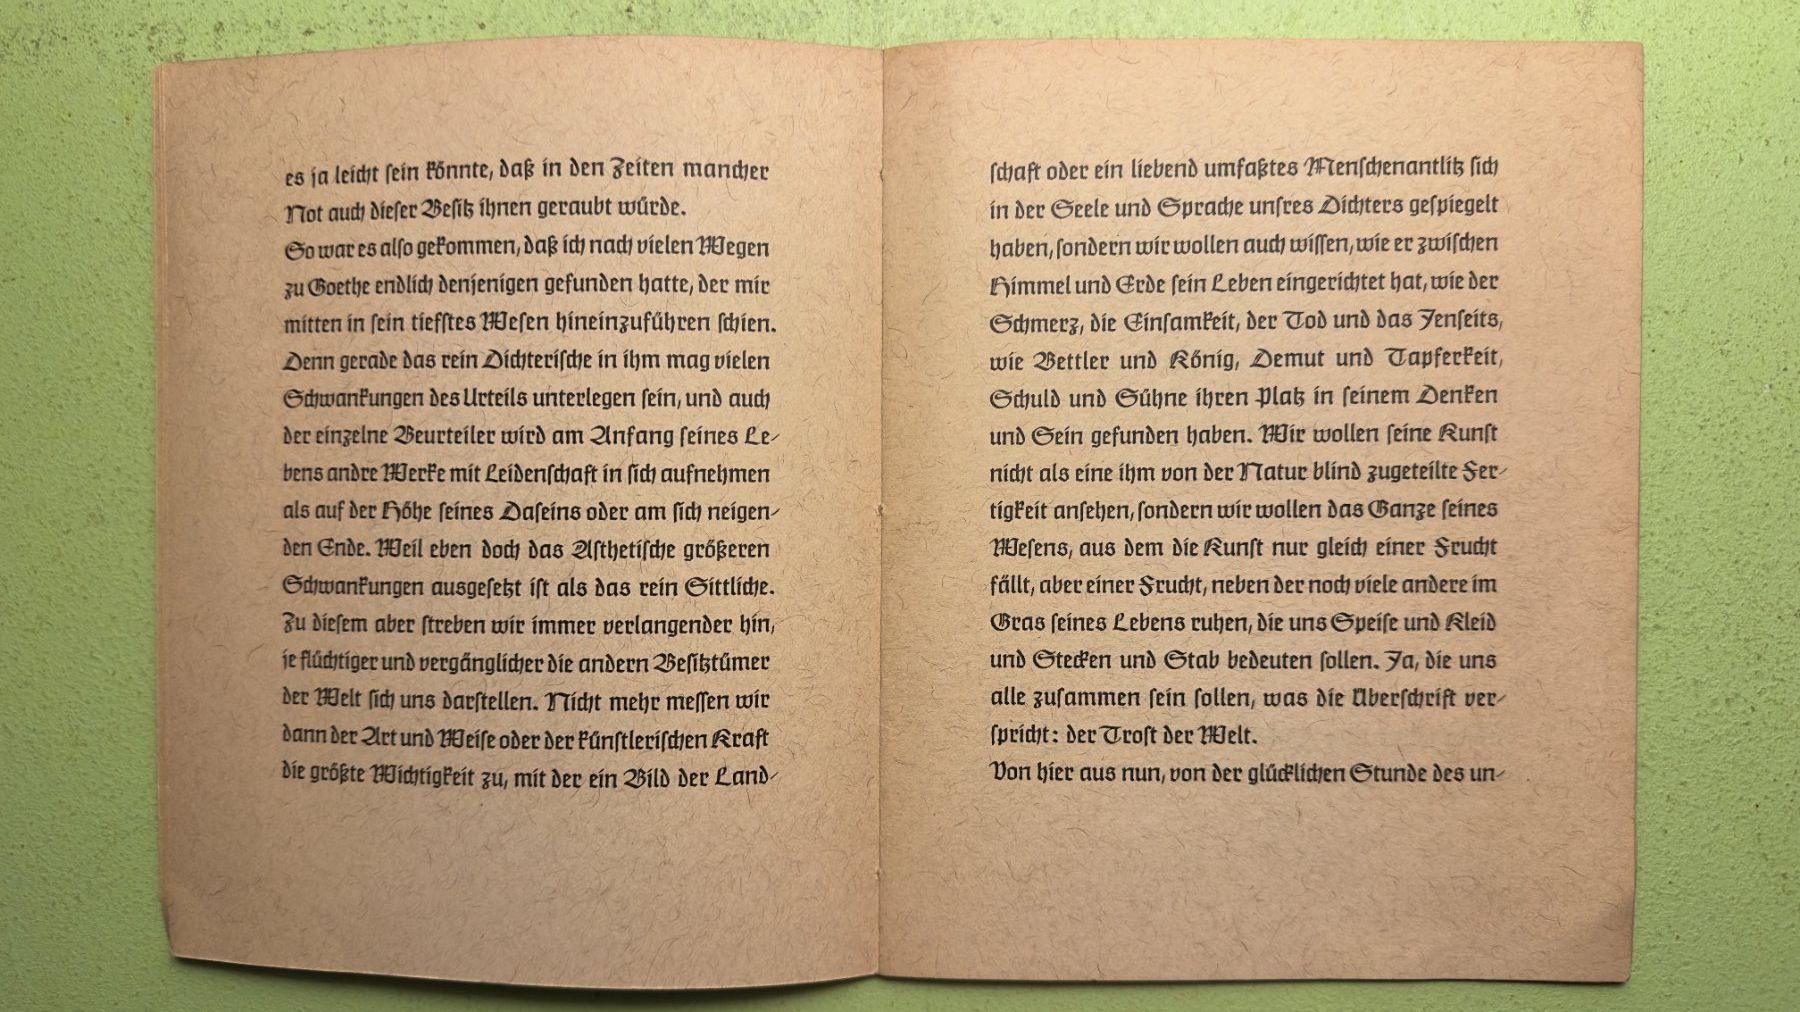 es ja leicht sein könnte, daß in den Zeiten mancher
Not auch dieser Besitz ihnen geraubt würde.
So war es also gekommen, daß ich nach vielen Wegen
zu Goethe endlich denjenigen gefunden hatte, der mir
mitten in sein tiefstes Wesen hineinzuführen schien.
Denn gerade das rein Dichterische in ihm mag vielen
Schwankungen des Urteils unterlegen sein, und auch
der einzelne Beurteiler wird am Anfang seines Le-
bens andre Werke mit Leidenschaft in sich aufnehmen
als auf der Höhe seines Daseins oder am sich neigen-
den Ende. Weil eben doch das Ästhetische größeren
Schwankungen ausgesetzt ist als das rein Sittliche.
Zu diesem aber streben wir immer verlangender hin,
je flüchtiger und vergänglicher die andern Besitztümer
der Welt sich uns darstellen. Nicht mehr messen wir
dann der Art und Weise oder der künstlerischen Kraft
die größte Wichtigkeit zu, mit der ein Bild der Land-
schaft oder ein liebend umfaßtes Menschenantlitz sich
in der Seele und Sprache unsres Dichters gespiegelt
haben, sondern wir wollen auch wissen, wie er zwischen
Himmel und Erde sein Leben eingerichtet hat, wie der
Schmerz, die Einsamkeit, der Tod und das Jenseits,
wie Bettler und König, Demut und Tapferkeit,
Schuld und Sühne ihren Platz in seinem Denken
und Sein gefunden haben. Wir wollen seine Kunst
nicht als eine ihm von der Natur blind zugeteilte Fer-
tigkeit ansehen, sondern wir wollen das Ganze seines
Wesens, aus dem die Kunst nur gleich einer Frucht
fällt, aber einer Frucht, neben der noch viele andere im
Gras seines Lebens ruhen, die uns Speise und Kleid
und Stecken und Stab bedeuten sollen. Ja, die uns
alle zusammen sein sollen, was die Überschrift ver-
spricht: der Trost der Welt.
Von hier aus nun, von der glücklichen Stunde des un-